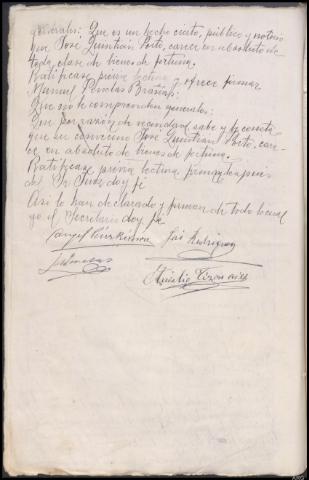 generales: Que es un hecho cierto, público y notorio
que José Quintián Porto, carece en absoluto de
toda clase de bienes de fortuna.
Ratifícase previa lectura y ofrece firmar
Manuel Penelas Brañas:
Que no le comprenden generales:
Que por razón de vecindad sabe y le consta
que su convecino José Quintián Porto, care-
ce en absoluto de bienes de fortuna.
Ratifícase previa lectura
del Sr Juez doy fé
Así lo han declarado y firman de todo lo cual
yo el Secretario doy fé
José Rodriguez
Penelas
Aurelio